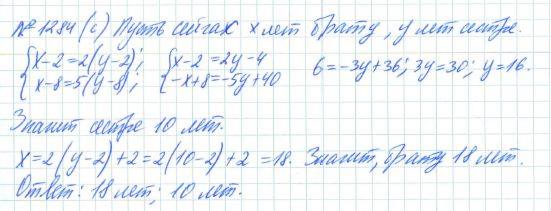 №1284 (с) Пусть сейчас x лет брату, y лет сестре.
{x-2=2(y-2); {x-2=2y-4 6=-3y+36; 3y=30; y=16.
{x-8=5(y-8); {-x+8=-5y+40
Значит сестре 10 лет.
x=2(y-2)+2=2(10-2)+2=18. Значит, брату 18 лет.
Ответ: 18 лет; 10 лет.